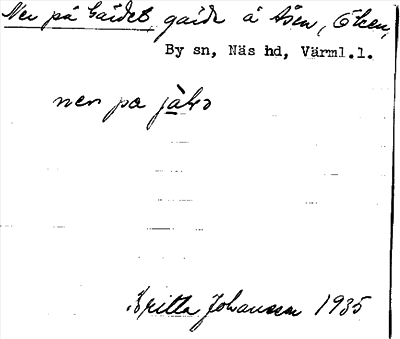 Ner på Gärdet, gärde å Åsen, Ölsen,
By sn, Näs hd, Värml.l.
ner pa
Britta Johansson 1935